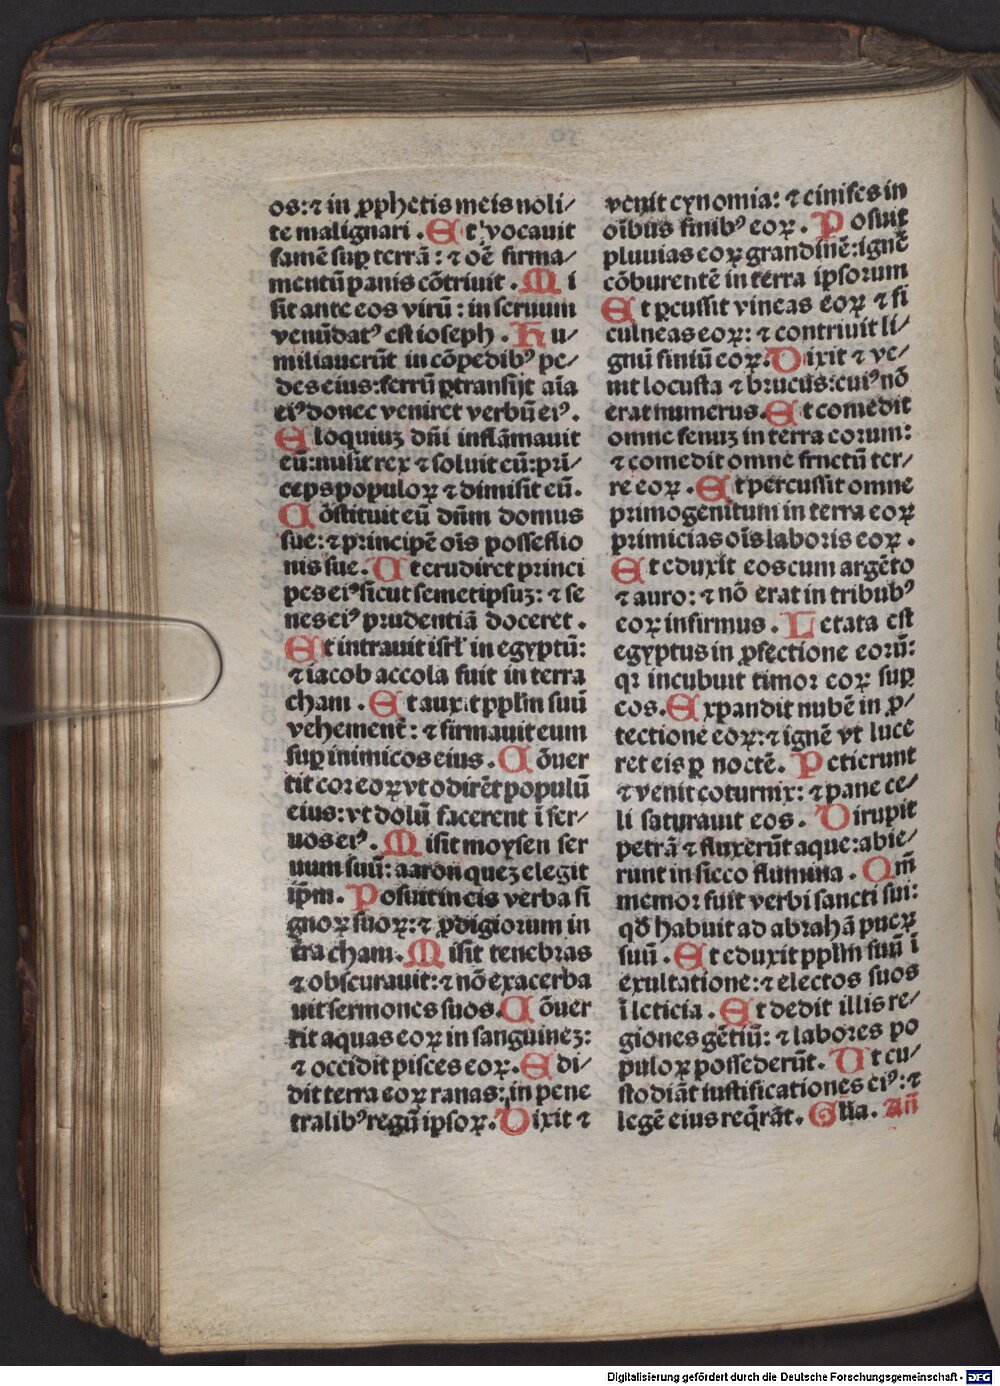 os:⁊ in ꝓphetis meis noli/
te malignari . Et vocauit
famē suꝑ terrā : ⁊ oē firma/
mentū panis cōtriuit . Mi
sit ante eos virū : in seruum
venūdatꝰ est ioseph . Hu/
miliauerūt in cōpedibꝰ pe/
des eius:ferrū ꝑtransijt aīa
eiꝰ donec veniret verbū eiꝰ.
Eloquiuꝫ dn̄i inflāmauit
eū:misit rex ⁊ soluit eū:prī/
ceps populoꝝ ⁊ dimisit eū.
Cōstituit eū dn̄m domus
sue:⁊ principē oīs possessio
nis sue . Ut erudiret princi
pes eiꝰ sicut semetipsuꝫ: ⁊ se
nes eiꝰ prudentiā doceret .
Et intrauit isrl̄ in egyptū:
⁊ iacob accola fuit in terra
cham . Et auxit ppl̄m suū
vehementē: ⁊ firmauit eum
suꝑ inimicos eius . Cōuer
tit cor eoꝝ vt odirēt populū
eius: vt dolū facerent ī ser/
uos eiꝰ. Misit moysen ser
uum suū: aaron queꝫ elegit
ip̄m . Posuit in eis verba si
gnoꝝ suoꝝ:⁊ ꝓdigiorum in
tr̄a cham . Misit tenebras
⁊ obscurauit:⁊ nō exacerba
uit sermones suos. Cōuer
tit aquas eoꝝ in sanguineꝫ:
⁊ occidit pisces eoꝝ. Edi/
dit terra eoꝝ ranas: in pene
tralibꝰ regū ipsoꝝ. Dixit ⁊
venit cynomia: ⁊ cinifes in
oībus finibꝰ eoꝝ . Posuit
pluuias eoꝝ grandinē:ignē
cōburentē in terra ipsorum
Et ꝑcussit vineas eoꝝ ⁊ fi
culneas eoꝝ: ⁊ contriuit li/
gnū finiū eoꝝ. Dixit ⁊ ve/
nit locusta ⁊ brucus:cuiꝰ nō
erat numerus. Et comedit
omne fenuꝫ in terra eorum:
⁊ comedit omne frnctū ter/
re eoꝝ . Et percussit omne
primogenitum in terra eoꝝ
primicias oīs laboris eoꝝ .
Et eduxit eos cum argēto
⁊ auro: ⁊ nō erat in tribubꝰ
eoꝝ infirmus . Letata est
egyptus in ꝓfectione eorū:
qꝛ incubuit timor eoꝝ suꝑ
eos . Expandit nubē in ꝓ/
tectione eoꝝ:⁊ ignē vt luce
ret eis ꝑ noctē. Petierunt
⁊ venit coturnix: ⁊ pane ce/
li saturauit eos . Dirupit
petrā ⁊ fluxerūt aque:abie/
runt in sicco flumina . Qm̄
memor fuit verbi sancti sui:
qd̄ habuit ad abrahā pueꝝ
suū . Et eduxit ppl̄m suū ī
exultatione:⁊ electos suos
ī leticia . Et dedit illis re/
giones gētiū: ⁊ labores po
puloꝝ possederūt. Ut cu/
stodiāt iustificationes eiꝰ:⁊
legē eius reqrāt. Gl̄ia. An̄
Digitalisierung gefördert durch die Deutsche Forschungsgemeinschaft - DFG